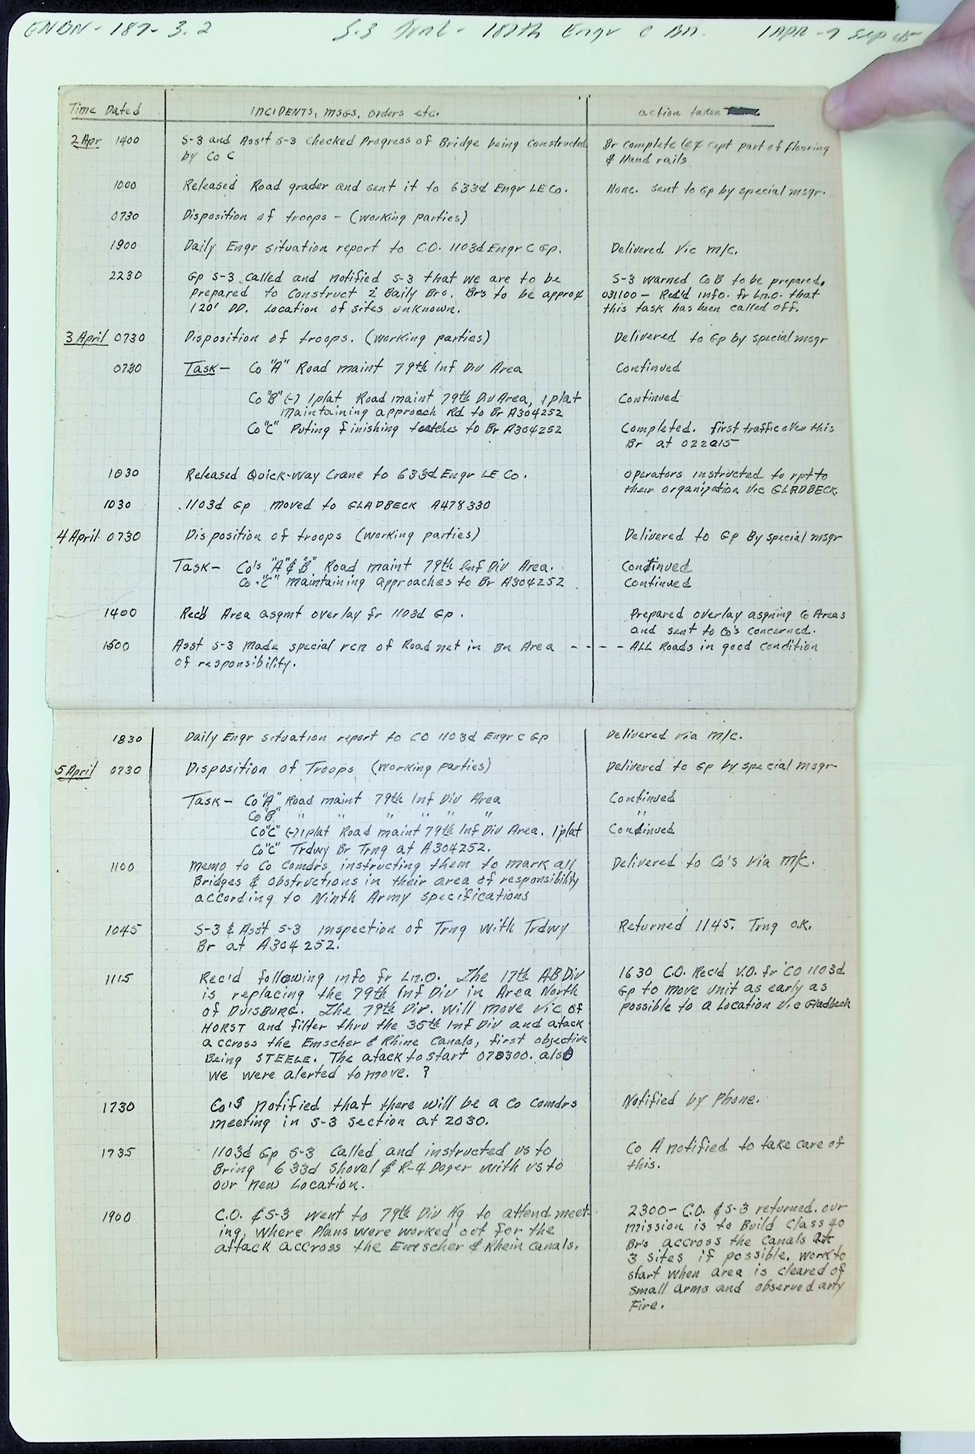 ENBN - 187 - 3.2 S-3 Jnl - 187th Engr C Bn. 1 APR - 7 Sep 45
Time Dated INCIDENTS, MSGS, orders etc. action taken
2 Apr 1400 S-3 and Ass't S-3 checked Progress of Bridge being constructed Br complete except part of flooring
by Co C & Hand rails
1000 Released Road grader and sent it to 633d Engr LE Co. None. sent to Gp by special msgr.
0730 Disposition of troops - (working parties)
1900 Daily Engr situation report to C.O. 1103d Engr C Gp. Delivered Via m/c.
2230 Gp S-3 called and notified S-3 that we are to be S-3 warned Co B to be prepared,
prepared to Construct 2 Baily Brs. Brs to be approx 031100 - Rec'd info. fr Ln.O. that
120' DD. Location of sites unknown. this task has been called off.
3 April 0730 Disposition of troops. (working parties) Delivered to Gp by special msgr
0730 Task - Co "A" Road maint 79th Inf Div Area Continued
Co "B" (-) 1plat Road maint 79th Div Area, 1plat Continued
maintaining approach Rd to Br A304252
Co "C" Puting finishing toutches to Br A304252 Completed. first traffic over this
Br at 022215
1030 Released Quick-Way Crane to 633d Engr LE Co. operators instructed to rpt to
their organization Vic GLADBECK.
1030 1103d Gp moved to GLADBECK A478330
4 April 0730 Disposition of troops (working parties) Delivered to Gp By special msgr
Task - Co's "A" & "B" Road maint 79th Inf Div Area. Continued
Co "C" maintaining approaches to Br A304252 Continued
1400 Rec'd Area asgmt overlay fr 1103d Gp. Prepared overlay asgning Co Areas
and sent to Co's concerned.
1500 Asst S-3 made special rcn of Road net in Bn Area - - - - ALL Roads in good condition
of responsibility.
1830 Daily Engr situation report to CO 1103d Engr C Gp Delivered via m/c.
5 April 0730 Disposition of Troops (working parties) Delivered to Gp by special msgr
Task - Co "A" Road maint 79th Inf Div Area Continued
Co "B" " " " " " " "
Co "C" (-) 1plat Road maint 79th Inf Div Area. 1plat Continued
Co "C" Trdwy Br Trng at A304252.
1100 memo to Co Comdrs instructing them to mark all Delivered to Co's Via m/c.
Bridges & obstructions in their area of responsibility
according to Ninth Army specifications
1045 S-3 & Asst S-3 inspection of Trng with Trdwy Returned 1145. Trng o.k.
Br at A304252.
1115 Rec'd following info fr Ln.O. The 17th AB Div 1630 C.O. Rec'd V.O. fr CO 1103d
is replacing the 79th Inf Div in Area North Gp to move unit as early as
of DUISBURG. The 79th Div. will move vic of possible to a Location Vic Gladbeck
HORST and filter thru the 35th Inf Div and atack
accross the Emscher & Rhine Canals, first objective
Being STEELE. The atack to start 070300. also
we were alerted to move. ?
1730 Co's notified that there will be a Co Comdrs Notified by Phone.
meeting in S-3 section at 2030.
1735 1103d Gp S-3 Called and instructed us to Co A notified to take care of
Bring 633d Shovel & R-4 Dozer with us to this.
our new Location.
1900 C.O. & S-3 went to 79th Div Hq to attend meet- 2300 - C.O. & S-3 returned. our
ing, where Plans were worked out for the mission is to Build Class 40
attack accross the Emscher & Rhein Canals. Brs accross the Canals at
3 sites if possible, work to
start when area is cleared of
small arms and observed arty
Fire.